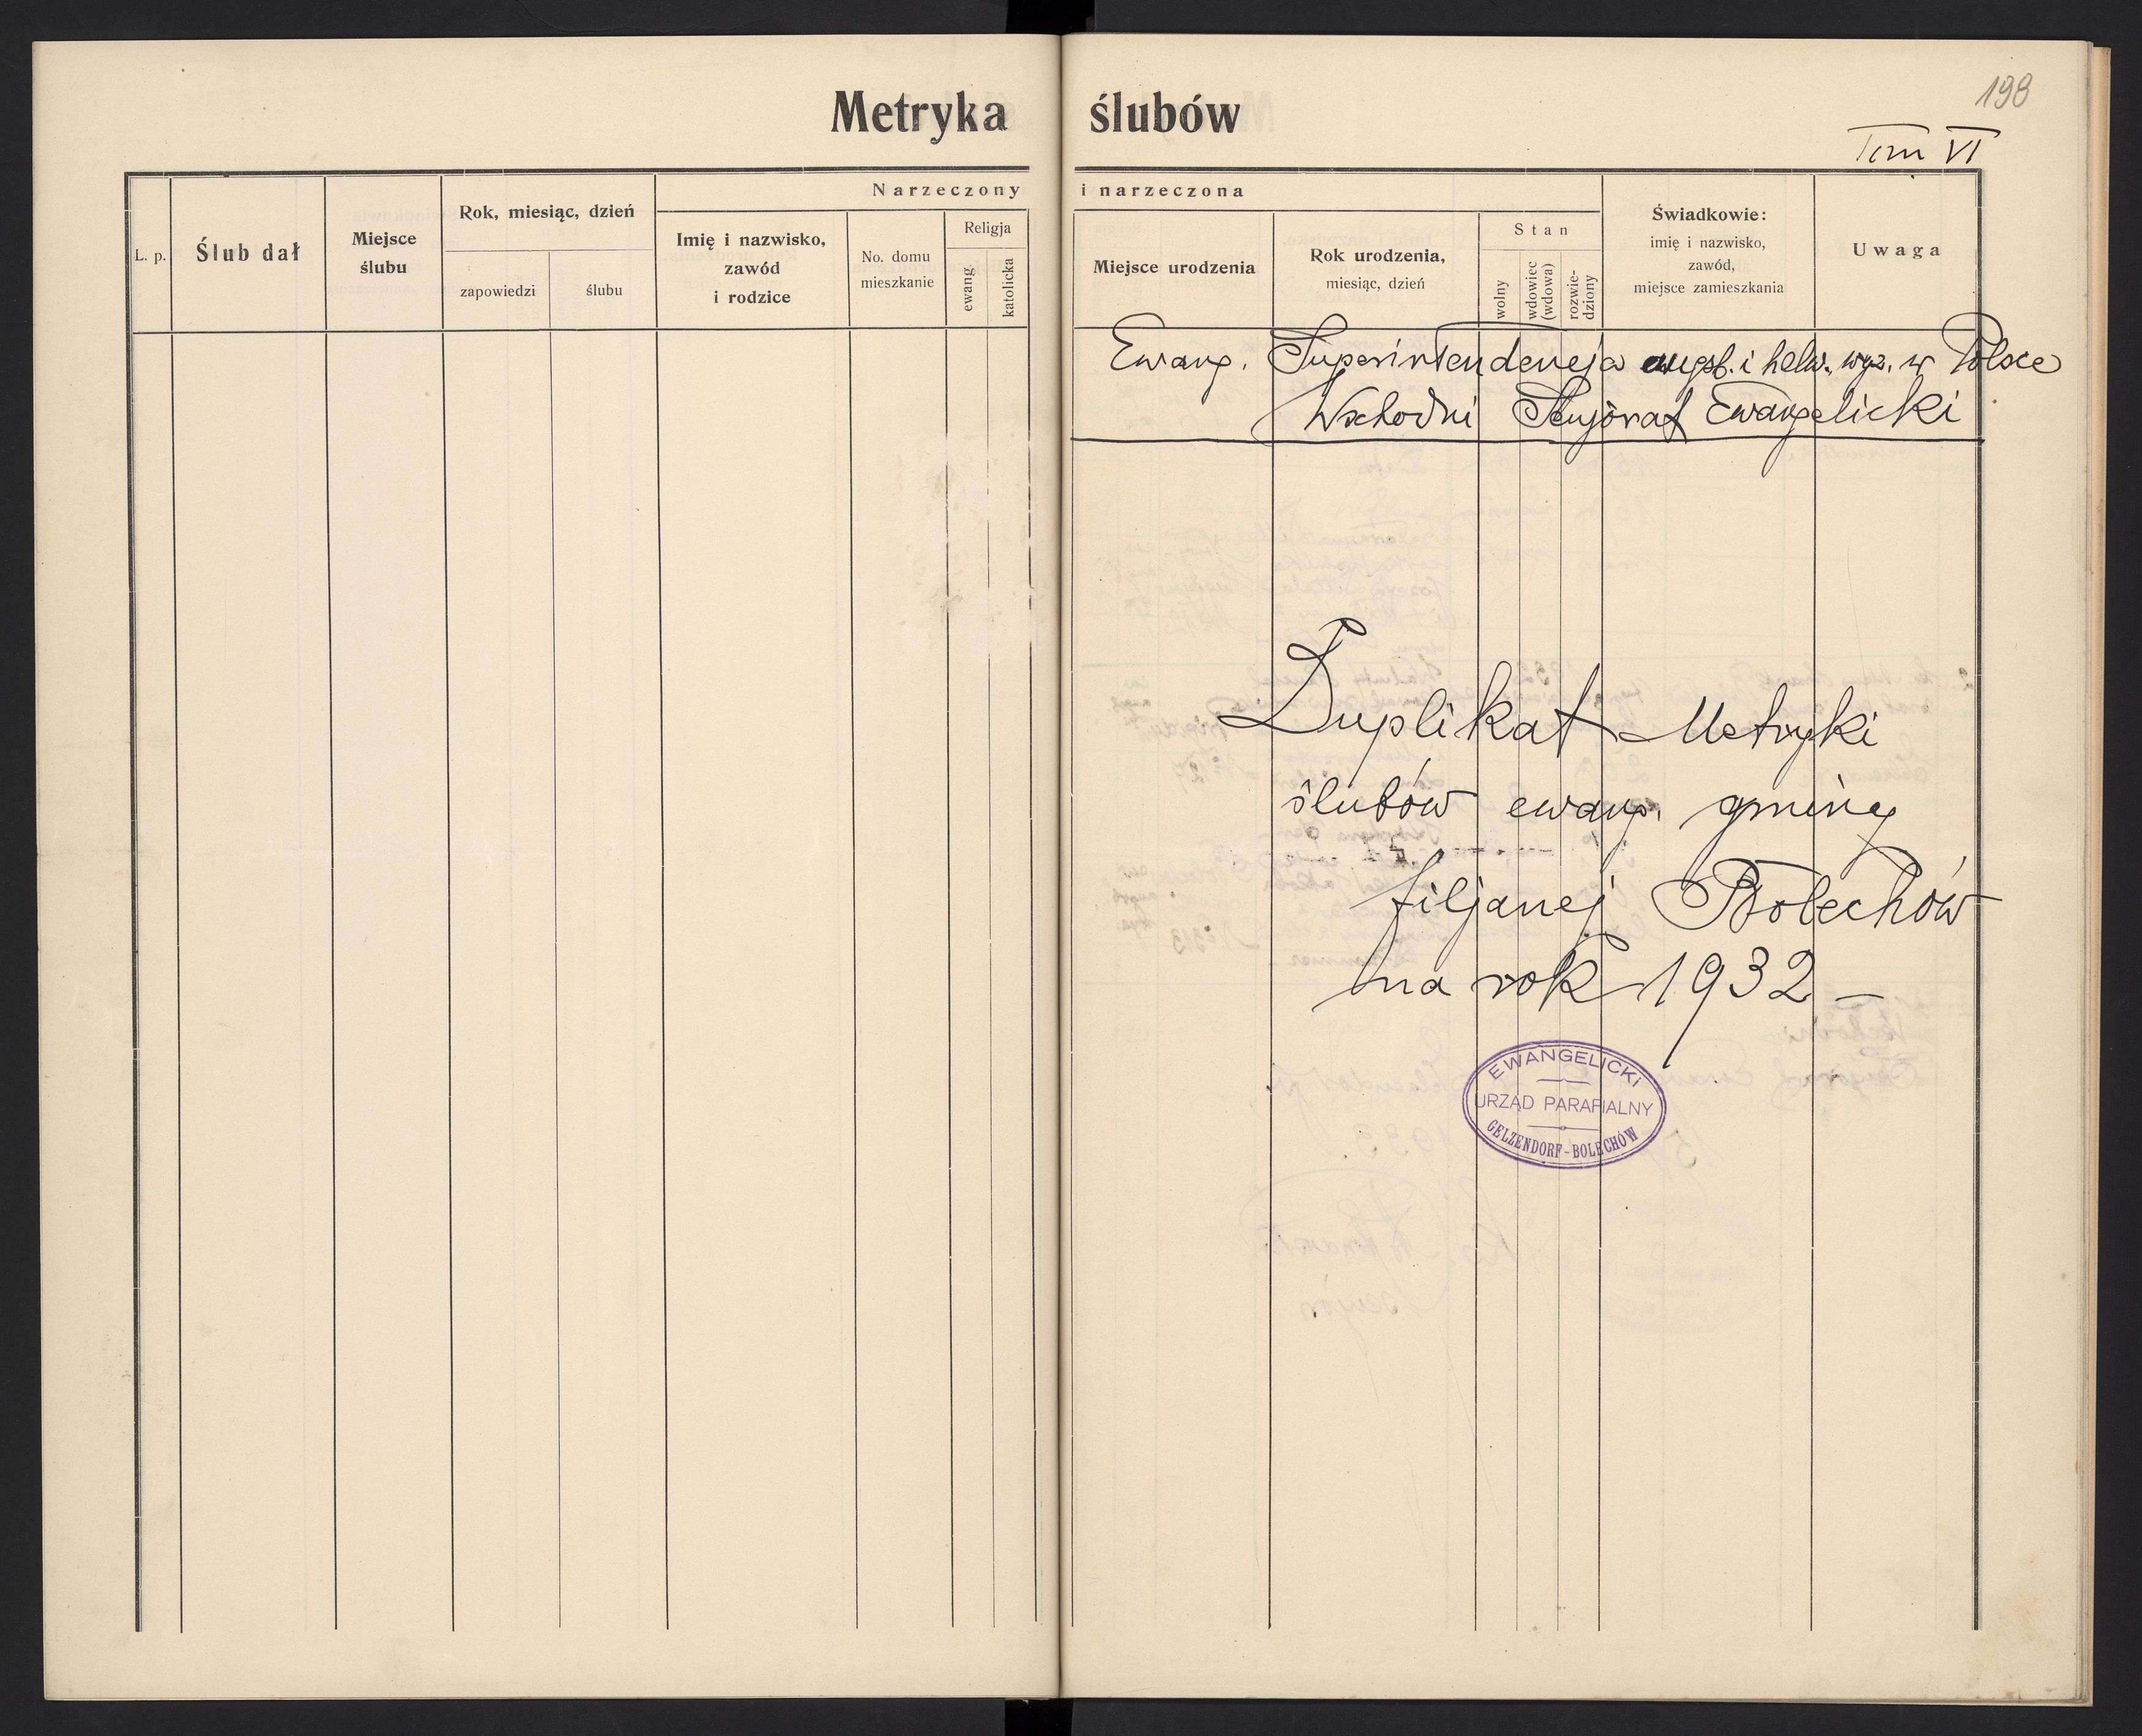 Metryka ślubów
198
Tom VI
L. p.
Ślub dał
Miejsce
ślubu
Rok, miesiąc, dzień
zapowiedzi
ślubu
Narzeczony i narzeczona
Imię i nazwisko,
zawód
i rodzice
No. domu
mieszkanie
Religja
ewang.
katolicka
Miejsce urodzenia
Rok urodzenia,
miesiąc, dzień
Stan
wolny
wdowiec
(wdowa)
rozwie-
dziony
Świadkowie:
imię i nazwisko,
zawód,
miejsce zamieszkania
Uwaga
Ewang. Superintendencja augsb. i helw. wyz. w Polsce
Wschodni Senjorat Ewangelicki
Duplikat Metryki
ślubów ewang. gminy
filjanej Bolechów
na rok 1932 –
EWANGELICKI
URZĄD PARAFIALNY
GELZENDORF-BOLECHÓW